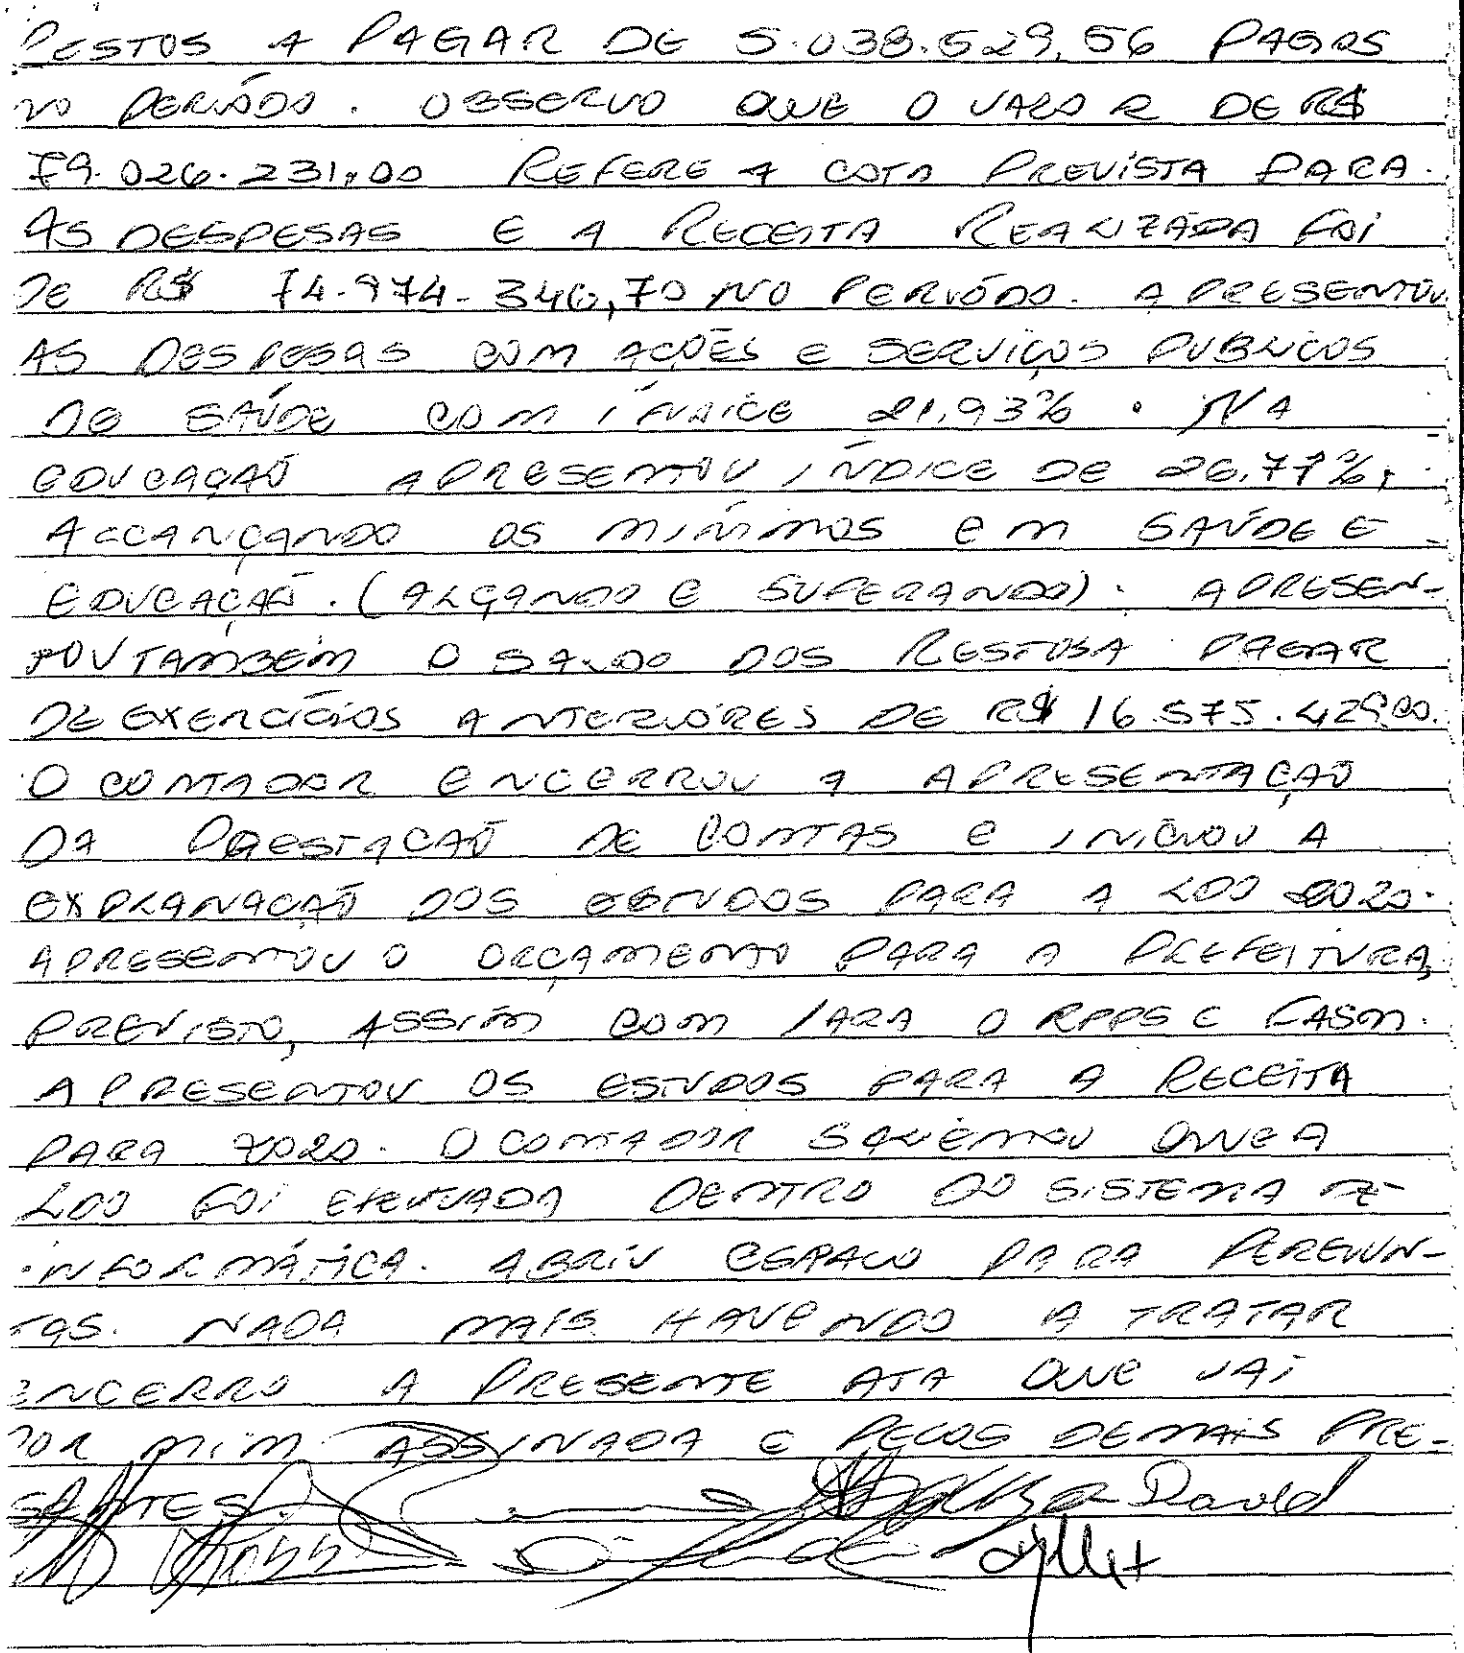 RESTOS A PAGAR DE 5.038.529,56 PAGOS
NO PERÍODO. OBSERVO QUE O VALOR DE R$
79.026.231,00 REFERE A COTA PREVISTA PARA
AS DESPESAS E A RECEITA REALIZADA FOI
DE R$ 74.974.346,70 NO PERIÓDO. APRESENTOU
AS DESPESAS COM AÇÕES E SERVIÇOS PUBLICOS
DE SAÚDE COM ÍNDICE 21,93% . NA
EDUCAÇÃO APRESENTOU ÍNDICE DE 26,77%,
ALCANÇANDO OS MÍNIMOS EM SAÚDE E
EDUCAÇÃO. (ALÇANDO E SUPERANDO). APRESEN-
TOU TAMBÉM O SALDO DOS RESTOS A PAGAR
DE EXERCÍCIOS ANTERIÓRES DE R$ 16.575.429,00.
O CONTADOR ENCERROU A APRESENTAÇÃO
DA PRESTAÇÃO DE CONTAS E INICIOU A
EXPLANAÇÃO DOS ESTUDOS PARA A LDO 2020.
APRESENTOU O ORÇAMENTO PARA A PREFEITURA,
PREVISTO, ASSIM COM PARA O RPPS E FASM.
APRESENTOU OS ESTUDOS PARA A RECEITA
PARA 2020. O CONTADOR SALIENTOU QUE A
LDO FOI EFETUADA DENTRO DO SISTEMA DE
INFORMÁTICA. ABRIU ESPAÇO PARA PERGUN-
TAS. NADA MAIS HAVENDO A TRATAR
ENCERRO A PRESENTE ATA QUE VAI
POR MIM ASSINADA E PELOS DEMAIS PRE-
SENTES. David